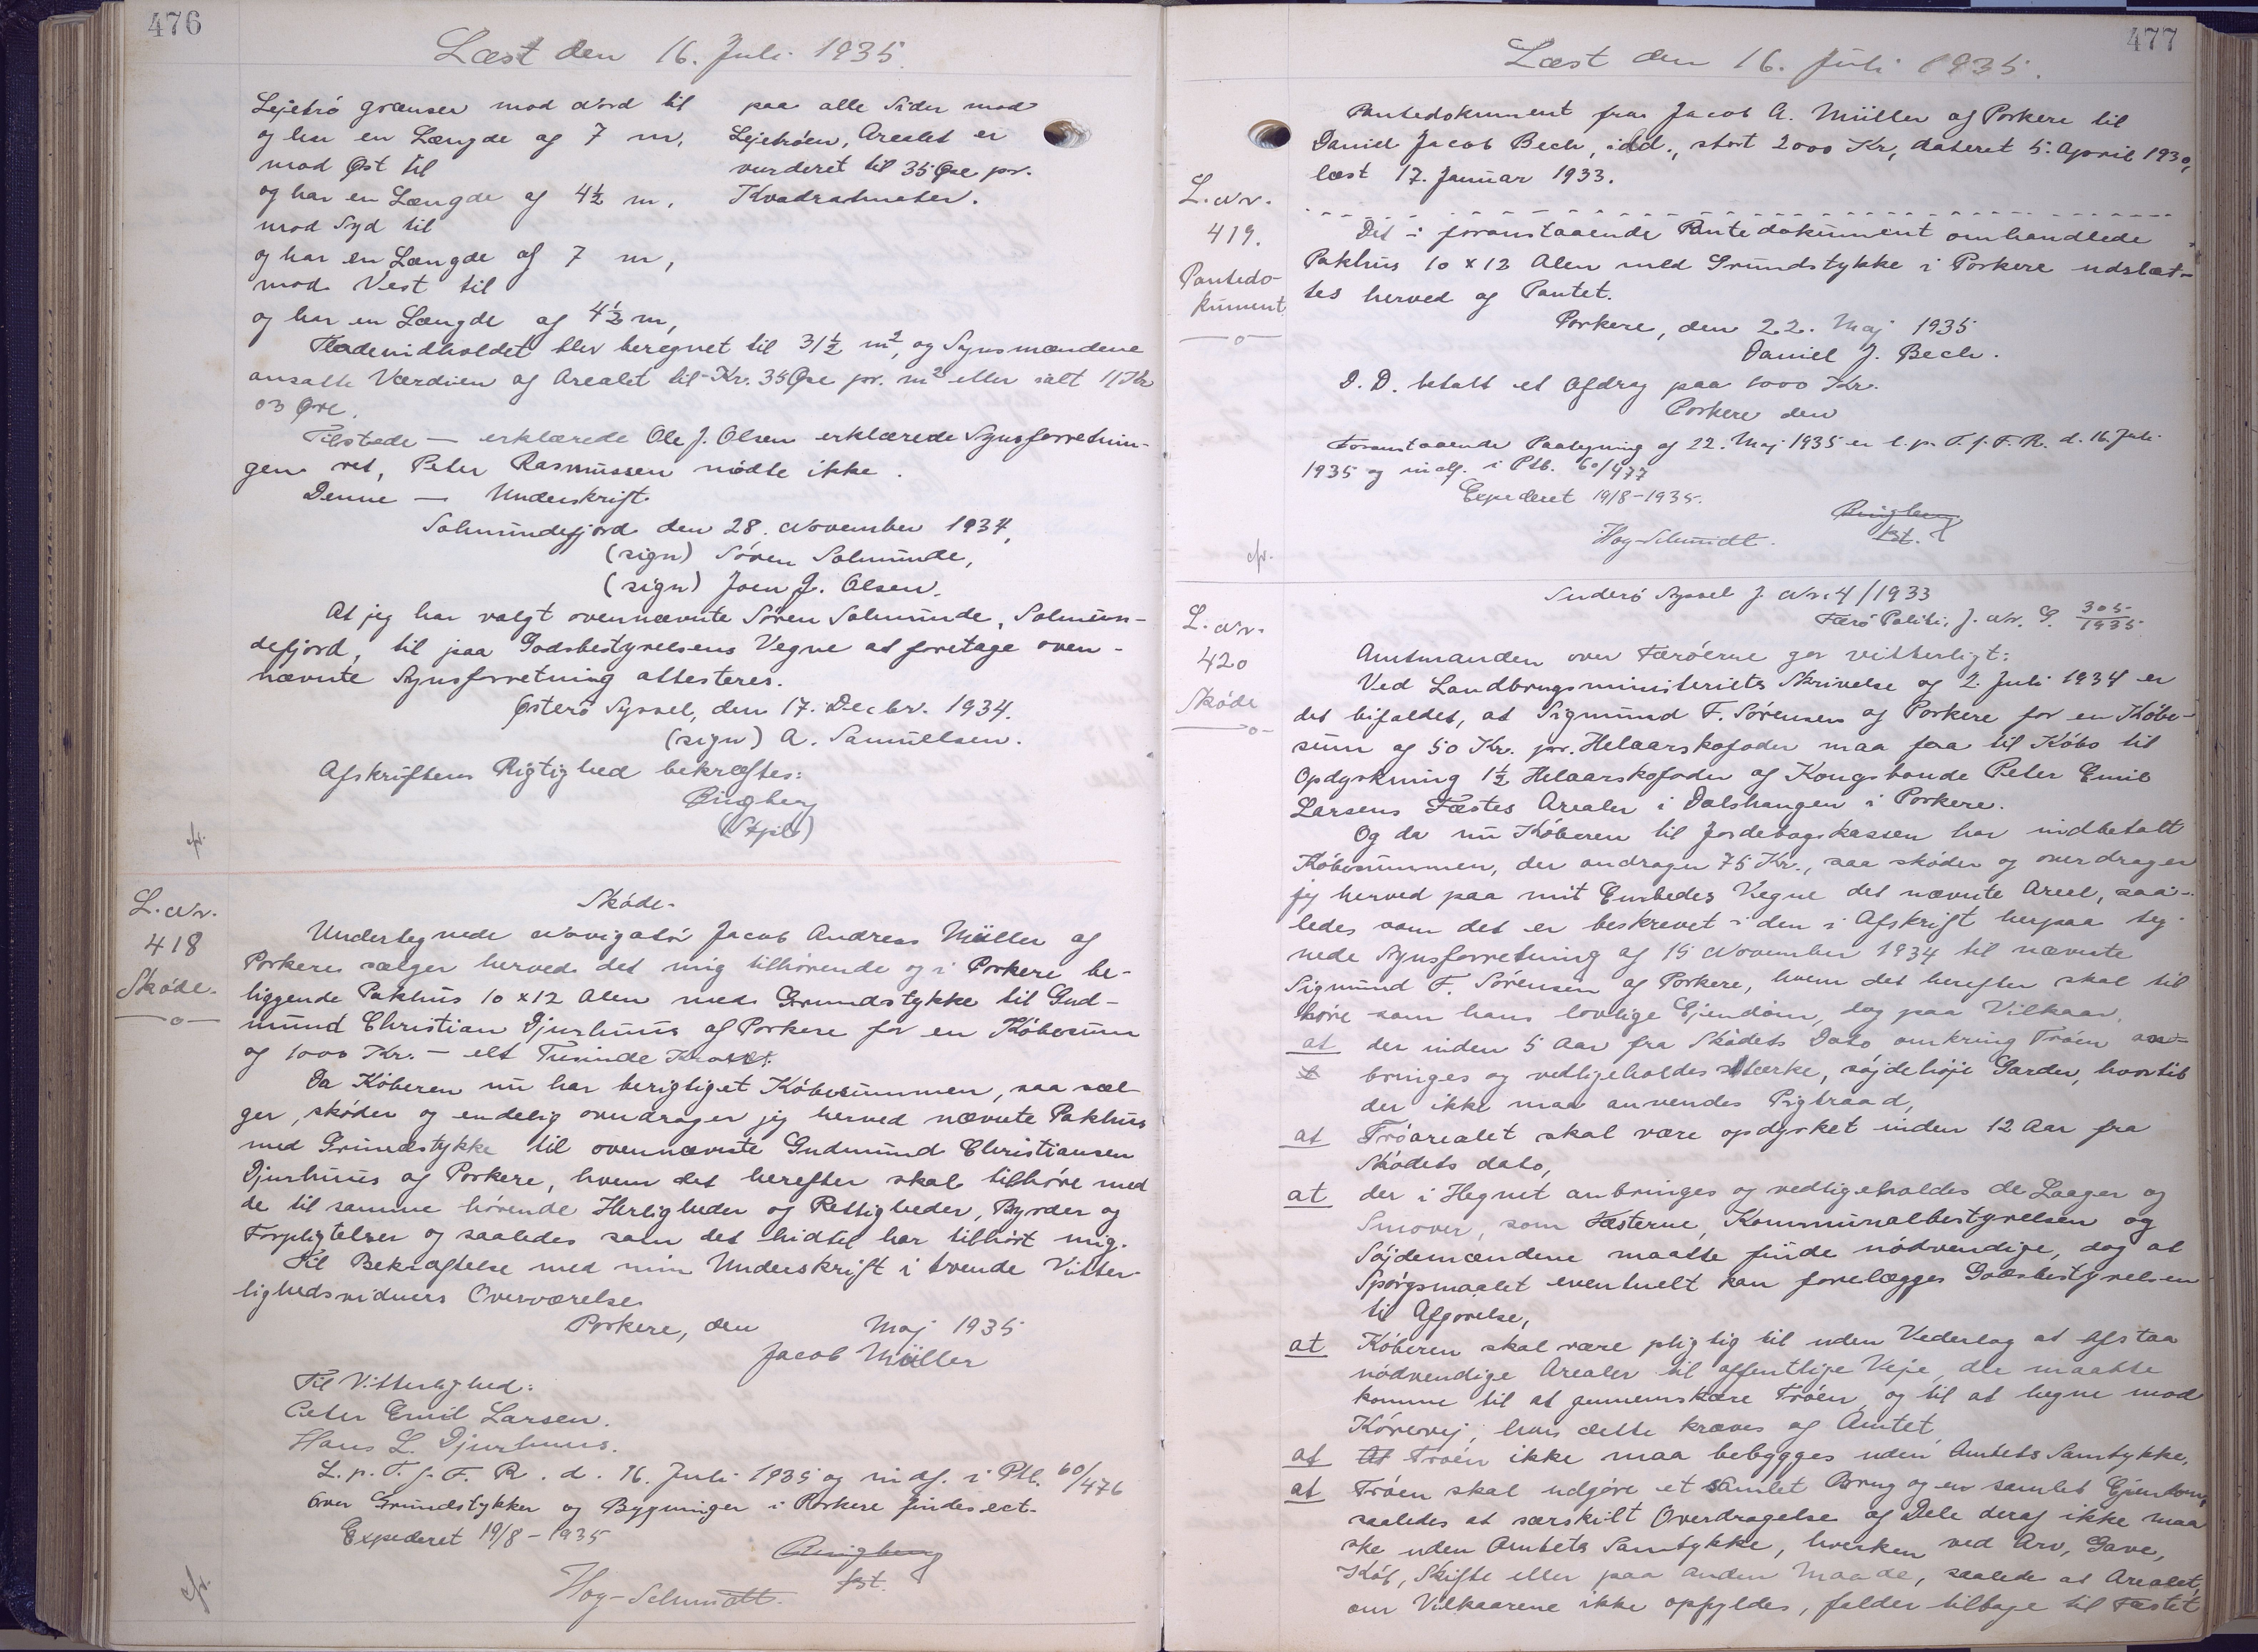 476
Læst den 16. Juli 1935.
Lejetrö grænser mod Nord til
og har en Længde af 7 m,
mod Øst til
og har en Længde af 4½ m,
mod Syd til
og har en Længde af 7 m,
mod Vest til
og har en Længde af 4½ m,
paa alle Sider mod
Lejetröen, Arealet er
vurderet til 35 Øre pr.
Kvadratmeter.
Fladeindholdet blev beregnet til 31½ m², og Synsmændene
ansatte Værdien af Arealet til Kr. 35 Øre pr. m² eller ialt 11 Kr
03 Øre.
Tilstede — erklærede Ole J. Olsen erklærede Synsforretnin-
gen ret, Peter Rasmussen mödte ikke.
Denne — Underskrift.
Solmundefjord den 28. November 1934,
(sign) Sören Solmunde,
(sign) Joen J. Olsen.
At jeg har valgt ovennævnte Sören Solmunde, Solmun-
defjord, til paa Godsbestyrelsens Vegne at foretage oven-
nævnte Synsforretning attesteres.
Österö Syssel, den 17. Decbr. 1934.
(sign) A. Samuelsen.
Afskriftens Rigtighed bekræftes:
Ringberg
(Stpls)
cfr.
L. Nr.
418
Sköde.
Sköde.
Undertegnede Navigatör Jacob Andreas Müller af
Porkere sælger herved det mig tilhörende og i Porkere be-
liggende Pakhus 10 x 12 Alen med Grundstykke til Gud-
mund Christian Djurhuus af Porkere for en Köbesum
af 1000 Kr. — ett Tusinde Kroner.
Da Köberen nu har berigtiget Köbesummen, saa sæl-
ger, sköder og endelig overdrager jeg herved nævnte Pakhus
med Grundstykke til ovennævnte Gudmund Christiansen
Djurhuus af Porkere, hvem det herefter skal tilhöre med
de til samme hörende Herligheder og Rettigheder, Byrder og
Forpligtelser og saaledes som det hidtil har tilhört mig.
Til Bekræftelse med min Underskrift i tvende Vitter-
lighedsvidners Overværelse
Porkere, den Maj 1935
Jacob Müller
Til Vitterlighed:
Peter Emil Larsen.
Hans L. Djurhuus.
L. p. T. f. F. R. d. 16. Juli 1935 og indf. i Ptb. 60/476
Over Grundstykker og Bygninger i Porkere findes ect.
Expederet 19/8 - 1935
Ringberg
fst.
Hoy-Schmidt.
cfr.
477
Læst den 16. Juli 1935.
L. Nr.
419.
Pantedo-
kument
Pantedokument fra Jacob A. Müller af Porkere til
Daniel Jacob Bech, ibd., stort 2000 Kr, dateret 5. April 1930,
læst 17. Januar 1933.
Det i foranstaaende Pantedokument omhandlede
Pakhus 10 x 12 Alen med Grundstykke i Porkere udslet-
tes herved af Pantet.
Porkere, den 22. Maj 1935
Daniel J. Bech.
D. D. betalt et Afdrag paa 1000 Kr.
Porkere den
Foranstaaende Paategning af 22. Maj 1935 er l. p. T. f. F. R. d. 16. Juli
1935 og indf. i Ptb. 60/477
Expederet 19/8 - 1935.
Ringberg
fst.
Hoy-Schmidt.
cfr.
L. Nr.
420
Sköde
Suderö Syssel J. Nr. 4/1933
Færö Politi, J. Nr. G. 305/1935
Amtmanden over Færöerne gör vitterligt:
Ved Landbrugsministeriets Skrivelse af 2. Juli 1934 er
det bifaldet, at Sigmund F. Sörensen af Porkere for en Köbe-
sum af 50 Kr. pr. Helaarskofoder maa faa til Köbs til
Opdyrkning 1½ Helaarskofoder af Kongsbonde Peter Emil
Larsens Fæstes Arealer i Dalshangen i Porkere.
Og da nu Köberen til Jordebogskassen har indbetalt
Köbesummen, der andrager 75 Kr., saa sköder og overdrager
jeg herved paa mit Embedes Vegne det nævnte Areal, saa-
ledes som det er beskrevet i den i Afskrift herpaa teg-
nede Synsforretning af 15 November 1934 til nævnte
Sigmund F. Sörensen af Porkere, hvem det herefter skal til
höre som hans lovlige Ejendom, dog paa Vilkaar,
at der inden 5 Aar fra Sködets Dato omkring Tröen an-
bringes og vedligeholdes stærke, söjdehöje Garder, hvortil
der ikke maa anvendes Pigtraad,
at Tröarealet skal være opdyrket inden 12 Aar fra
Sködets dato,
at der i Hegnet anbringes og vedligeholdes de Laager og
Smover, som Fæsterne, Kommunalbestyrelsen og
Söjdemændene maatte finde nödvendige, dog at
Spörgsmaalet eventuelt kan forelægges Godsbestyrelsen
til Afgörelse,
at Köberen skal være pligtig til uden Vederlag at afstaa
nödvendige Arealer til offentlige Veje, der maatte
komme til at gennemskære Tröen, og til at hegne mod
Körevej, hvis dette kræves af Amtet,
at Tröen ikke maa bebygges uden Amtets Samtykke,
at Tröen skal udgöre et samlet Brug og en samlet Ejendom,
saaledes at særskilt Overdragelse af Dele deraf ikke maa
ske uden Amtets Samtykke, hverken ved Arv, Gave,
Köb, Skifte eller paa anden Maade, saalede at Arealet,
om Vilkaarene ikke opfyldes, falder tilbage til Fæstet